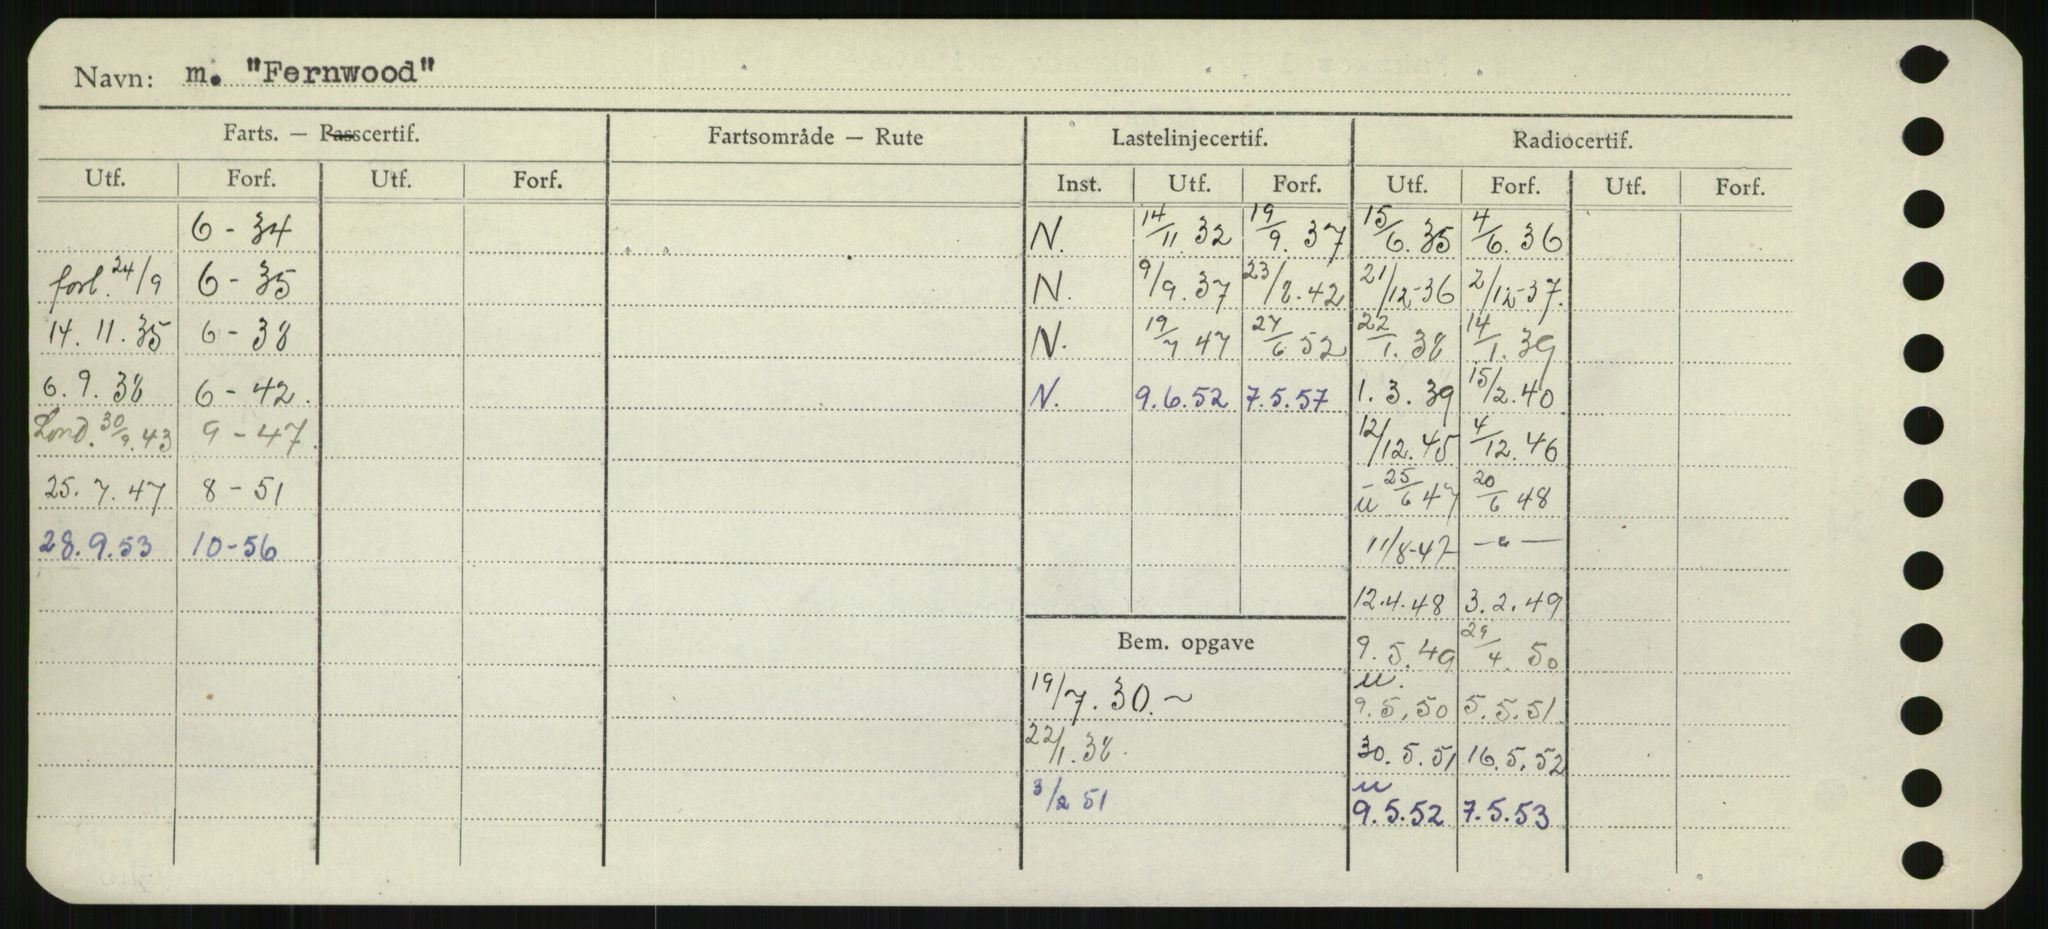 Navn: m. "Fernwood"
Farts. — Passcertif. Fartsområde — Rute Lastelinjecertif. Radiocertif.
Utf. Forf. Utf. Forf. Inst. Utf. Forf. Utf. Forf. Utf. Forf.
6 - 34 N. 14/11. 32 19/9. 37 15/6. 35 4/6. 36
forl. 24/9 6 - 35 N. 9/9. 37 23/8. 42 21/12-36 2/12-37.
14. 11. 35 6 - 38 N. 19/7 47 27/6 52 22/1. 38 14/1. 39
6. 9. 38 6 - 42. N. 9.6.52 7.5.57 1. 3. 39 15/2. 40
Lond. 30/9. 43 9 - 47. 12/12. 45 4/12. 46
25. 7. 47 8 - 51 u 25/6 47 20/6 48
28.9.53 10-56 11/8-47 — " —
12.4.48 3.2.49
Bem. opgave 9.5.49 29/4. 50
19/7. 30. ~ u. 9.5.50 5.5.51
22/1. 38. 30.5.51 16.5.52
3/2 51 u 9.5.52 7.5.53